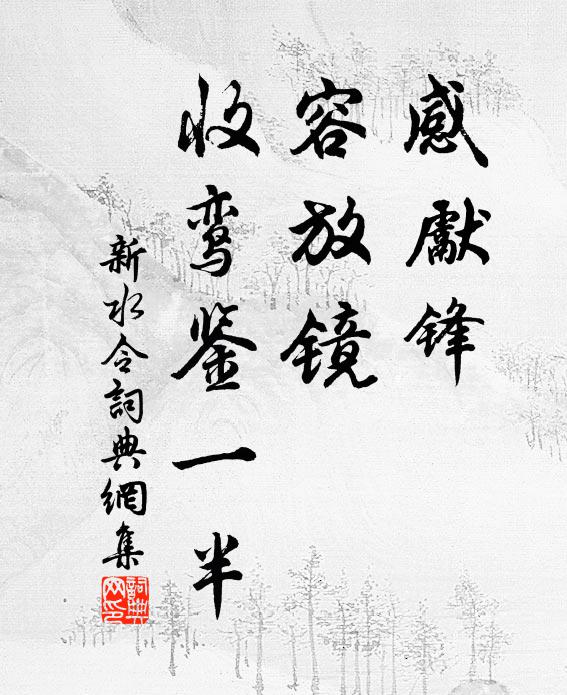 感獻锋
容放镜
收鸾鉴一半
新水令詞典網集
詞典网印